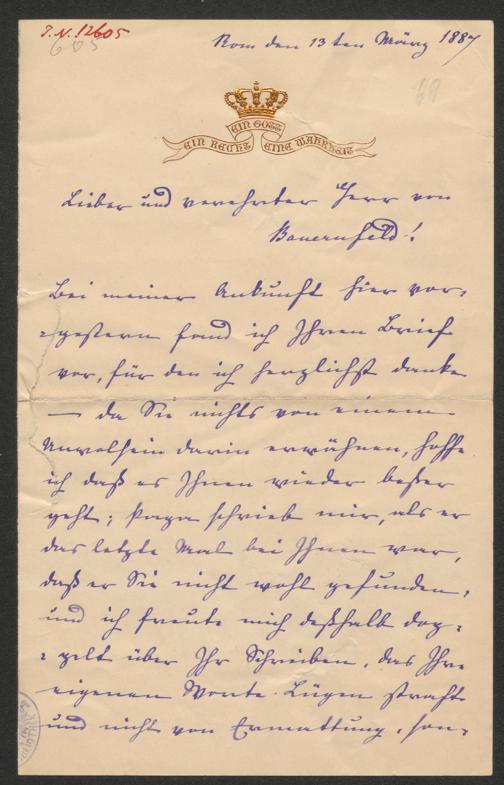 I.N. 12605
605
Rom den 13ten März 1887
69
EIN GOTT
EIN RECHT EINE WAHRHEIT
Lieber und verehrter Herr von
Bauernfeld!
Bei meiner Ankunft hier vor-
-gestern fand ich Ihren Brief
vor, für den ich herzlichst danke
— da Sie nichts von einem
Unwolsein darin erwähnen, hoffe
ich daß es Ihnen wieder beßer
geht; Papa schrieb mir, als er
das letzte Mal bei Ihnen war,
daß er Sie nicht wohl gefunden,
und ich freute mich deßhalb dop-
-pelt über Ihr Schreiben, das Ihre
eigenen Worte Lügen straft
und nicht von Ermattung, son-